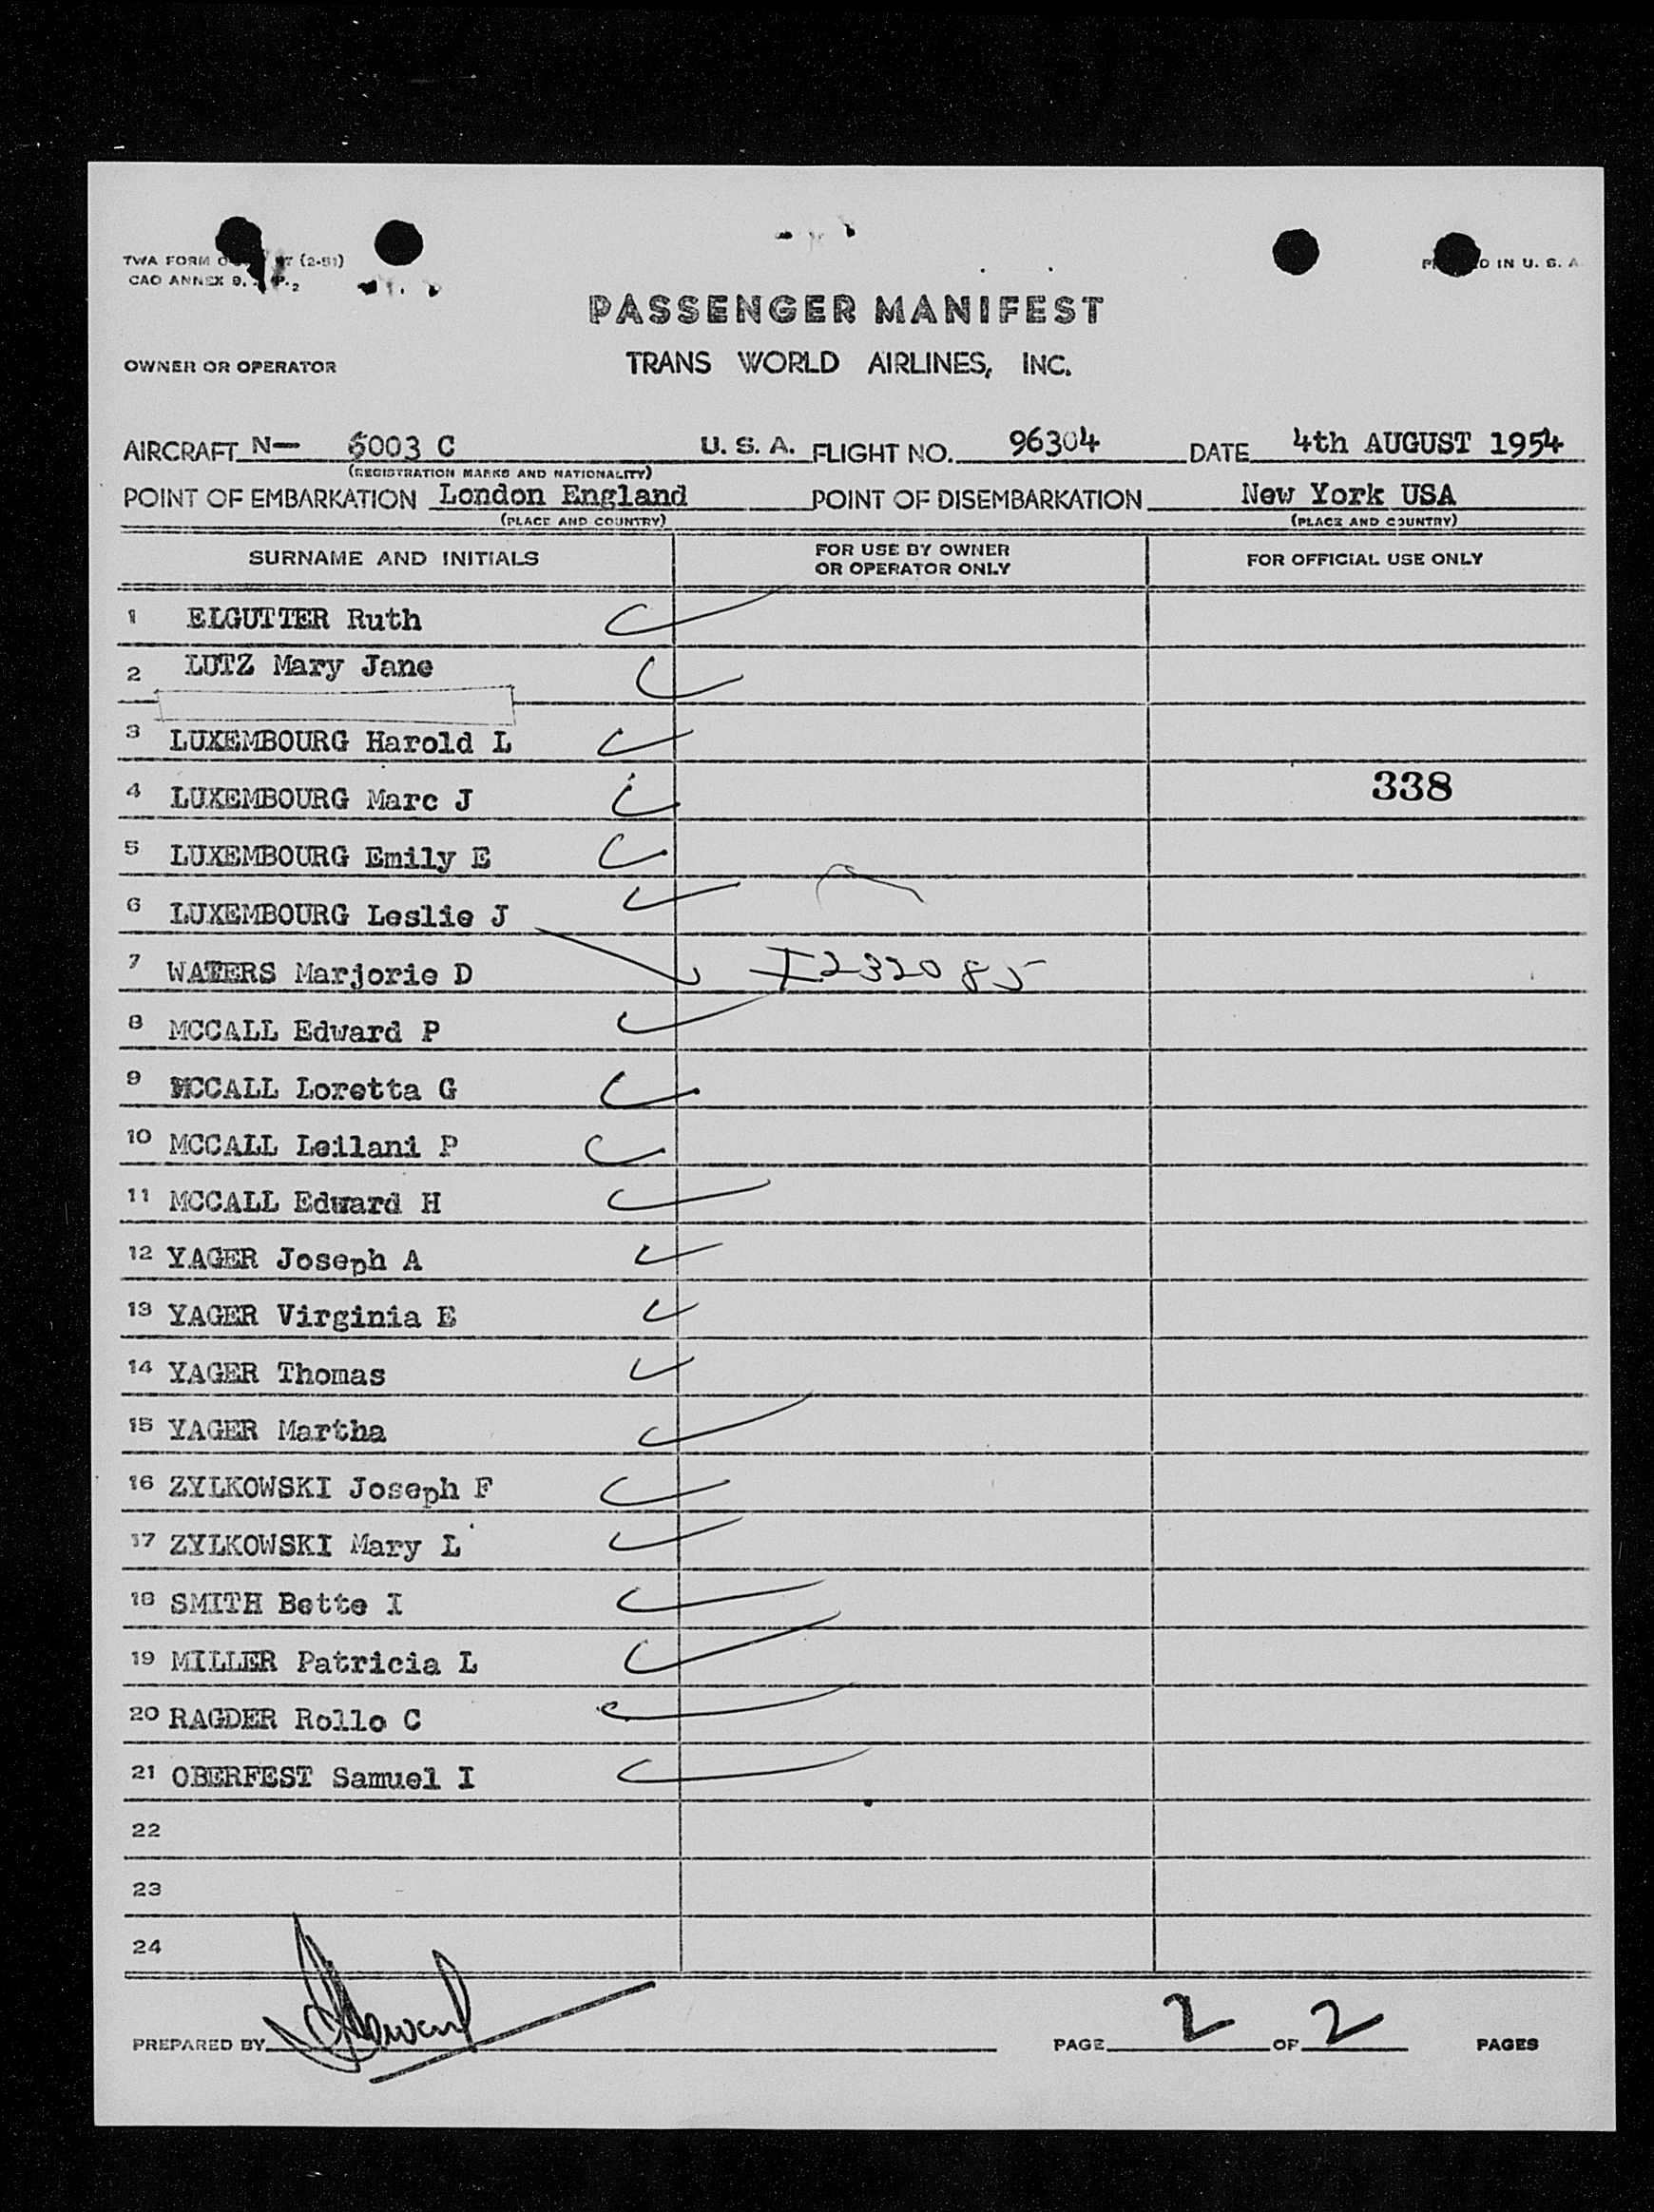 TWA FORM (2-51)
CAO ANNEX 9.
IN U. S. A.
PASSENGER MANIFEST
OWNER OR OPERATOR TRANS WORLD AIRLINES, INC.
AIRCRAFT N- 6003 C U. S. A. FLIGHT NO. 96304 DATE 4th AUGUST 1954
(REGISTRATION MARKS AND NATIONALITY)
POINT OF EMBARKATION London England POINT OF DISEMBARKATION New York USA
(PLACE AND COUNTRY) (PLACE AND COUNTRY)
SURNAME AND INITIALS FOR USE BY OWNER OR OPERATOR ONLY FOR OFFICIAL USE ONLY
1 ELGUTTER Ruth
2 LUTZ Mary Jane
3 LUXEMBOURG Harold L
4 LUXEMBOURG Marc J 338
5 LUXEMBOURG Emily E
6 LUXEMBOURG Leslie J
7 WATERS Marjorie D I232085
8 MCCALL Edward P
9 MCCALL Loretta G
10 MCCALL Leilani P
11 MCCALL Edward H
12 YAGER Joseph A
13 YAGER Virginia E
14 YAGER Thomas
15 YAGER Martha
16 ZYLKOWSKI Joseph F
17 ZYLKOWSKI Mary L
18 SMITH Bette I
19 MILLER Patricia L
20 RAGDER Rollo C
21 OBERFEST Samuel I
22
23
24
PREPARED BY PAGE 2 OF 2 PAGES